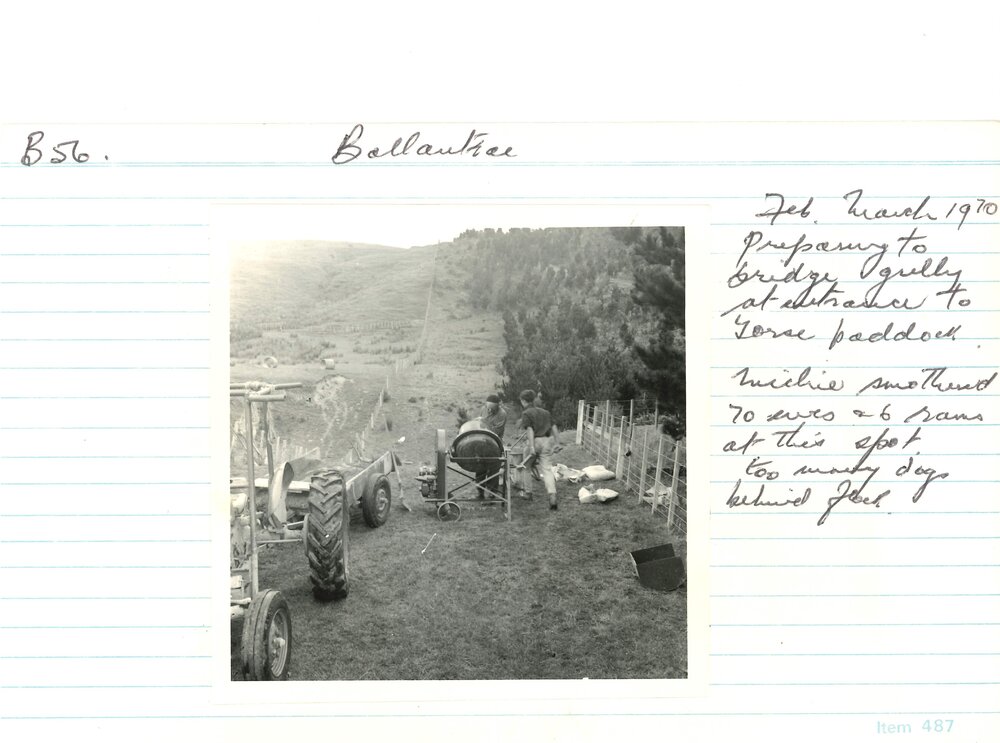 B56.
Ballantrae
Feb. March 1970
Preparing to
bridge gully
at entrance to
Gorse paddock.
Michie smothered
70 ewes & 6 rams
at this spot.
too many dogs
behind flock.
Item 487